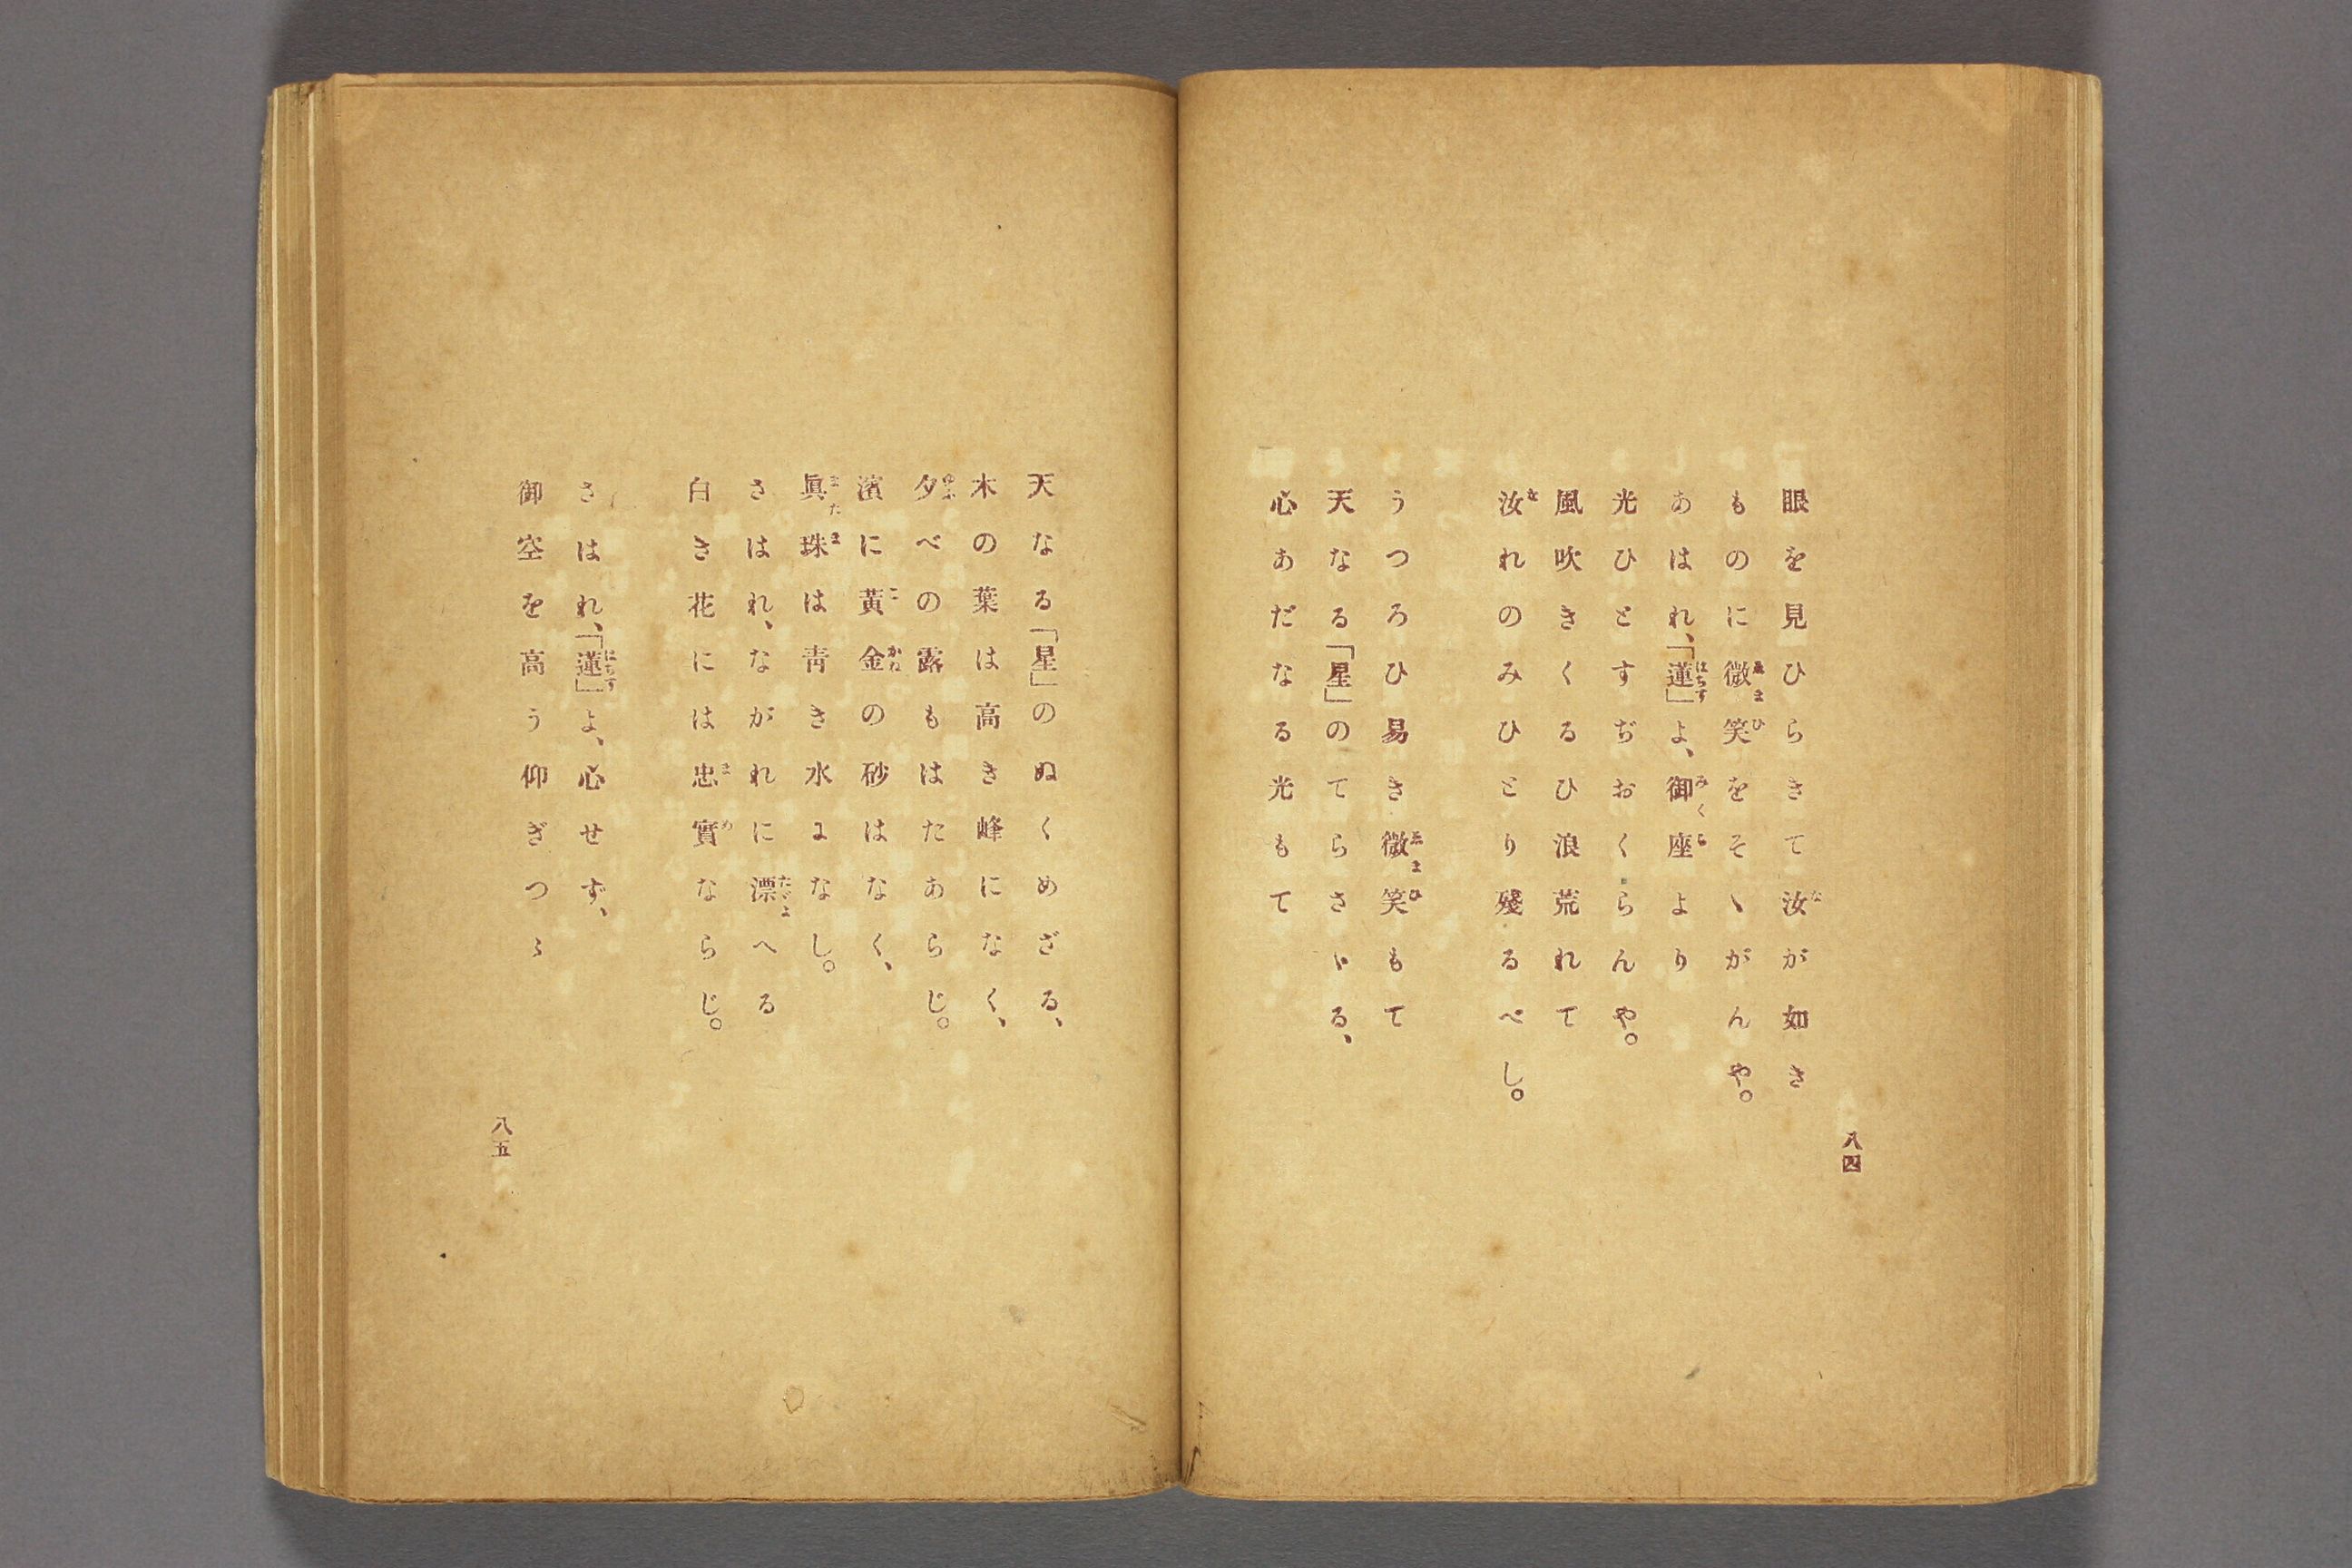 眼を見ひらきて汝が如き
ものに微笑をそゝがんや。
あはれ、「蓮」よ、御座より
光ひとすぢおくらんや。
風吹きくるひ浪荒れて
汝れのみひとり殘るべし。
うつろひ易き微笑もて
天なる「星」のてらさゞる、
心あだなる光もて
八四
天なる「星」のぬくめざる、
木の葉は高き峰になく、
夕べの露もはたあらじ。
濱に黃金の砂はなく、
眞珠は青き水になし。
さはれ、ながれに漂へる
白き花には忠實ならじ。
さはれ、「蓮」よ、心せず、
御空を高う仰ぎつゝ
八五